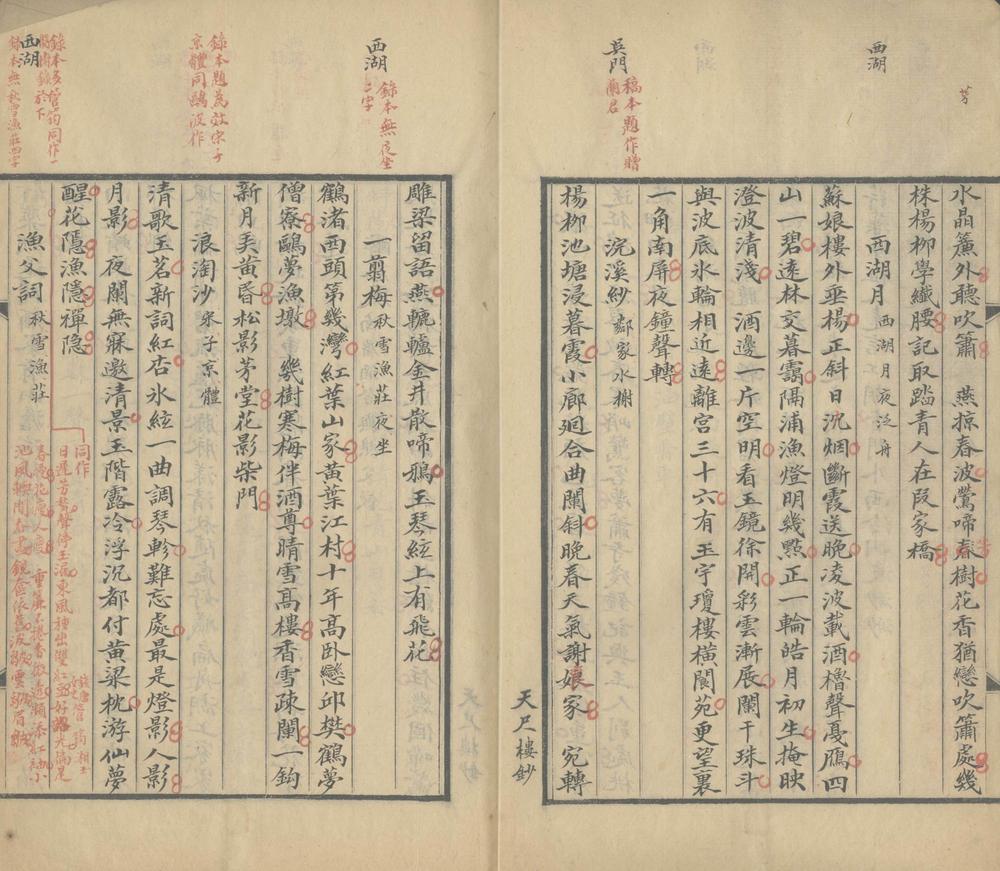 芳
水晶簾外聽吹簫　燕掠春波鶯啼春樹花香猶戀吹簫處幾
株楊柳學纖腰記取踏青人在段家橋
西湖
西湖月 西湖月夜泛舟
蘇娘樓外垂楊正斜日沉烟斷霞送晚凌波載酒櫓聲戞鴈四
山一碧遠林交暮靄隔浦漁燈明幾點正一輪皓月初生掩映
澄波清淺　酒邊一片空明看玉鏡徐開彩雲漸展闌干珠斗
與波底氷輪相近遠離宮三十六有玉宇瓊樓橫閬苑更望裏
一角南屏夜鐘聲轉
吳門
稿本題作贈
蘭君
浣溪紗 鄰家水榭
楊柳池塘浸暮霞小廊廻合曲闌斜晚春天氣謝孃家　宛轉
天尺樓鈔
雕梁留語燕轆轤金井散啼鴉玉琴絃上有飛花
西湖
錄本無夜坐
二字
一翦梅 秋雪漁莊夜坐
鶴渚西頭第幾灣紅葉山家黃葉江村十年高卧戀邱樊鶴夢
僧寮鷗夢漁墩　幾樹寒梅伴酒尊晴雪高樓香雪疎闌一鈎
新月美黃昏松影茅堂花影柴門
錄本題爲效宋子
京體同鷗波作
浪淘沙 宋子京體
清歌玉茗新詞紅杏氷絃一曲調琴軫難忘處最是燈影人影
月影　夜闌無寐邀清景玉階露冷浮沉都付黃粱枕游仙夢
醒花隱漁隱禪隐
西湖
錄本無秋雪漁莊四字
漁父詞 秋雪漁莊
同作